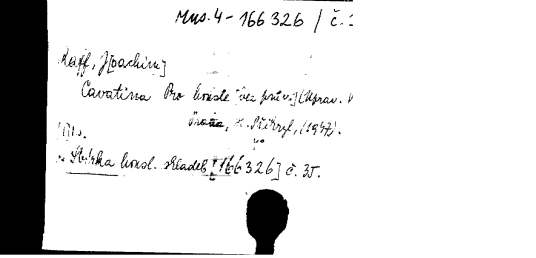 Mus. 4 - 166 326 / č.
Raff, J[oachim]
Cavatina Pro housle [bez prův.] (Uprav.
Praha, (1947).
Sbírka housl. skladeb [166326] č. 35.